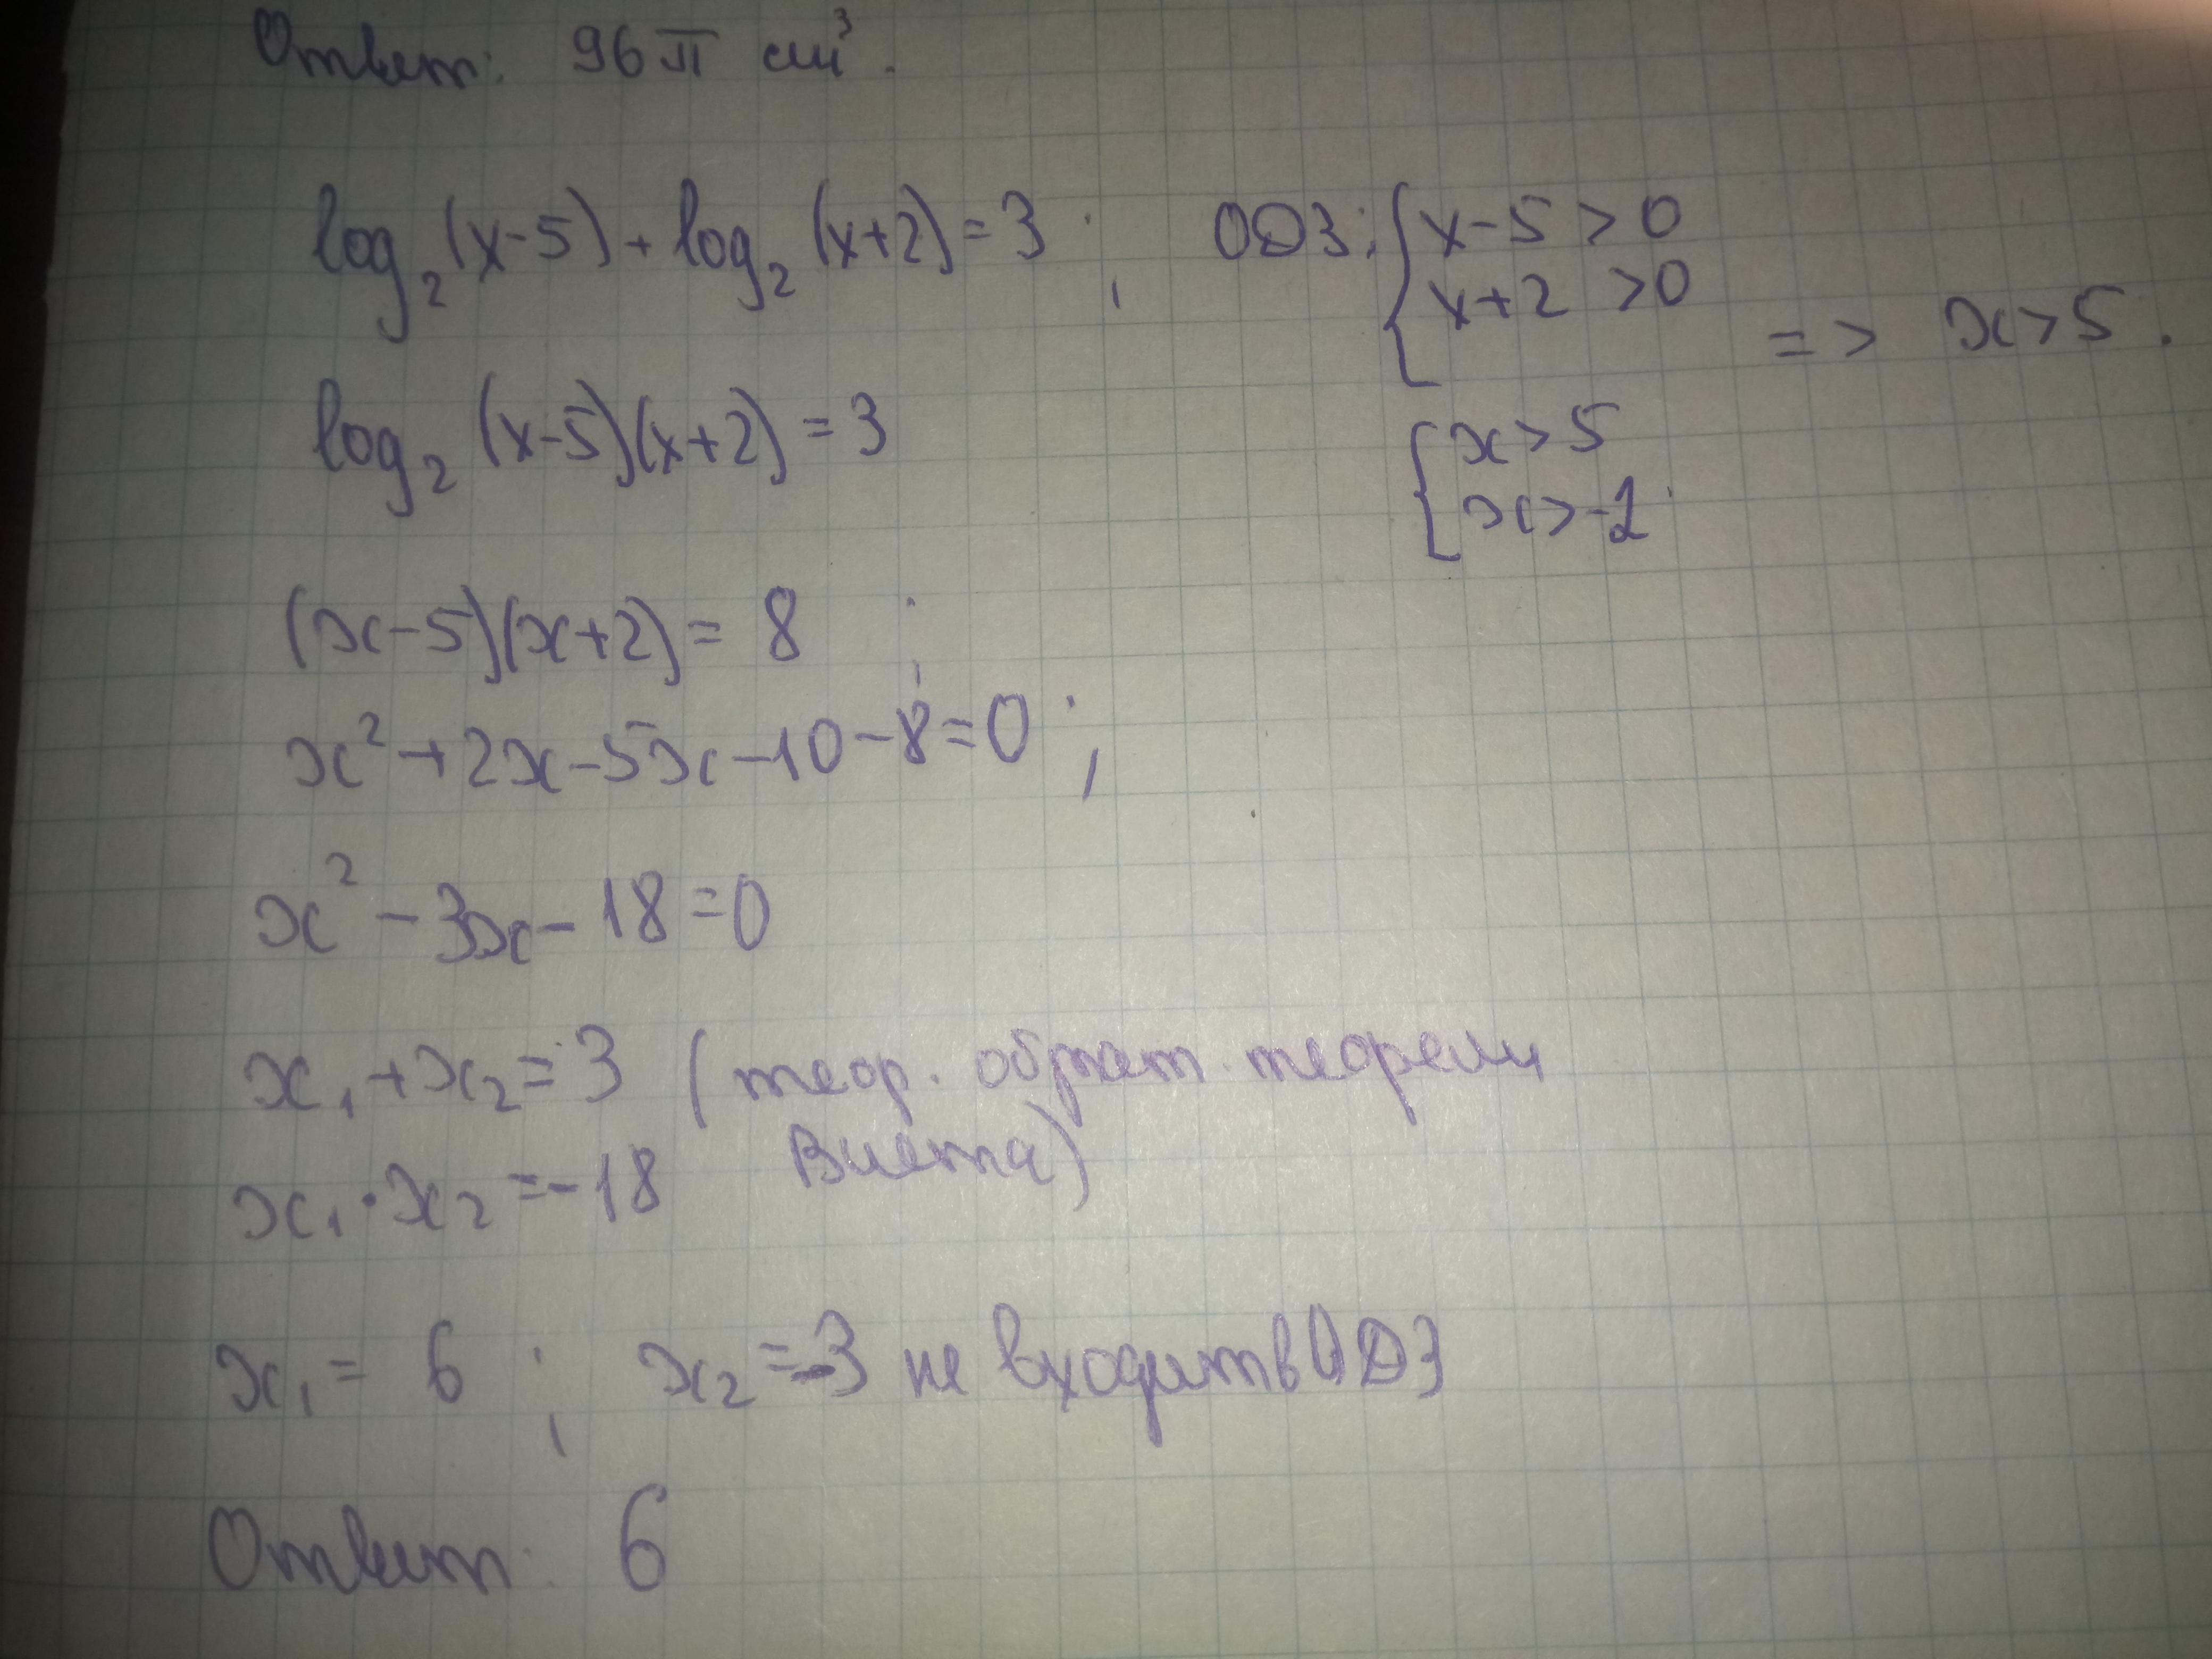 Ответ: 96π см³.
log₂(x-5)+log₂(x+2)=3; ОДЗ: { x-5>0
x+2>0
=> x>5.
log₂(x-5)(x+2)=3
{ x>5
x>-2.
(x-5)(x+2)=8;
x²+2x-5x-10-8=0;
x²-3x-18=0
x₁+x₂=3 (теор. обрат. теореми
Виета)
x₁·x₂=-18
x₁=6; x₂=-3 не входит в ОДЗ
Ответ: 6